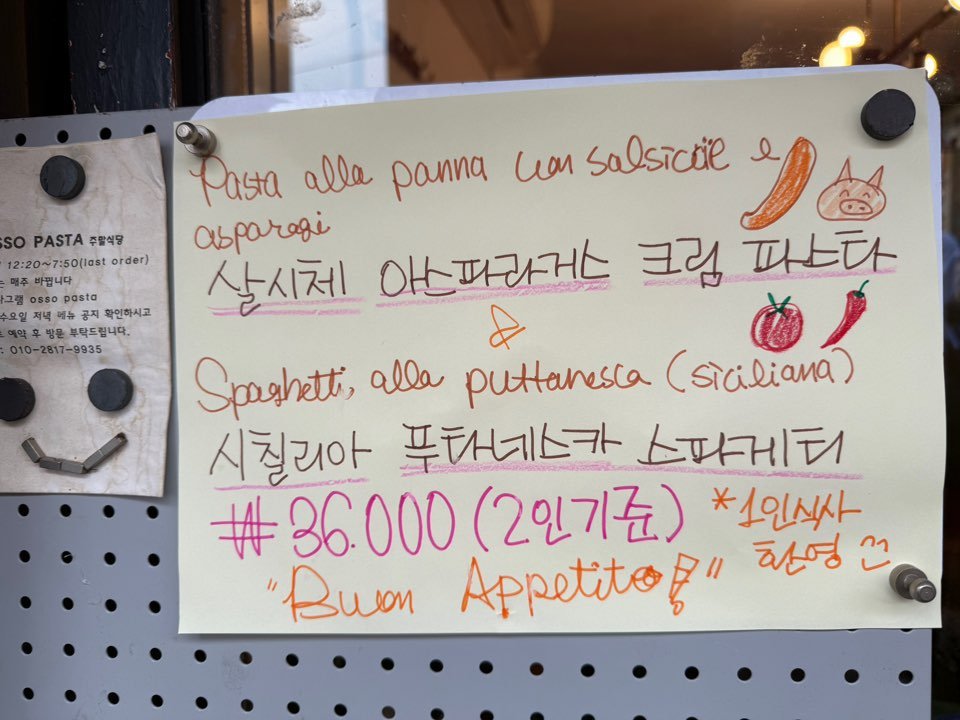 OSSO PASTA 주말식당
12:20~7:50(last order)
는 매주 바뀝니다
그램 osso pasta
수요일 저녁 메뉴 공지 확인하시고
예약 후 방문 부탁드립니다.
010-2817-9935
Pasta alla panna con salsicce e
asparagi
살시체 아스파라거스 크림 파스타
&
Spaghetti, alla puttanesca (siciliana)
시칠리아 푸타네스카 스파게티
₩36.000 (2인기준)
*1인식사
환영
"Buon Appetito!"